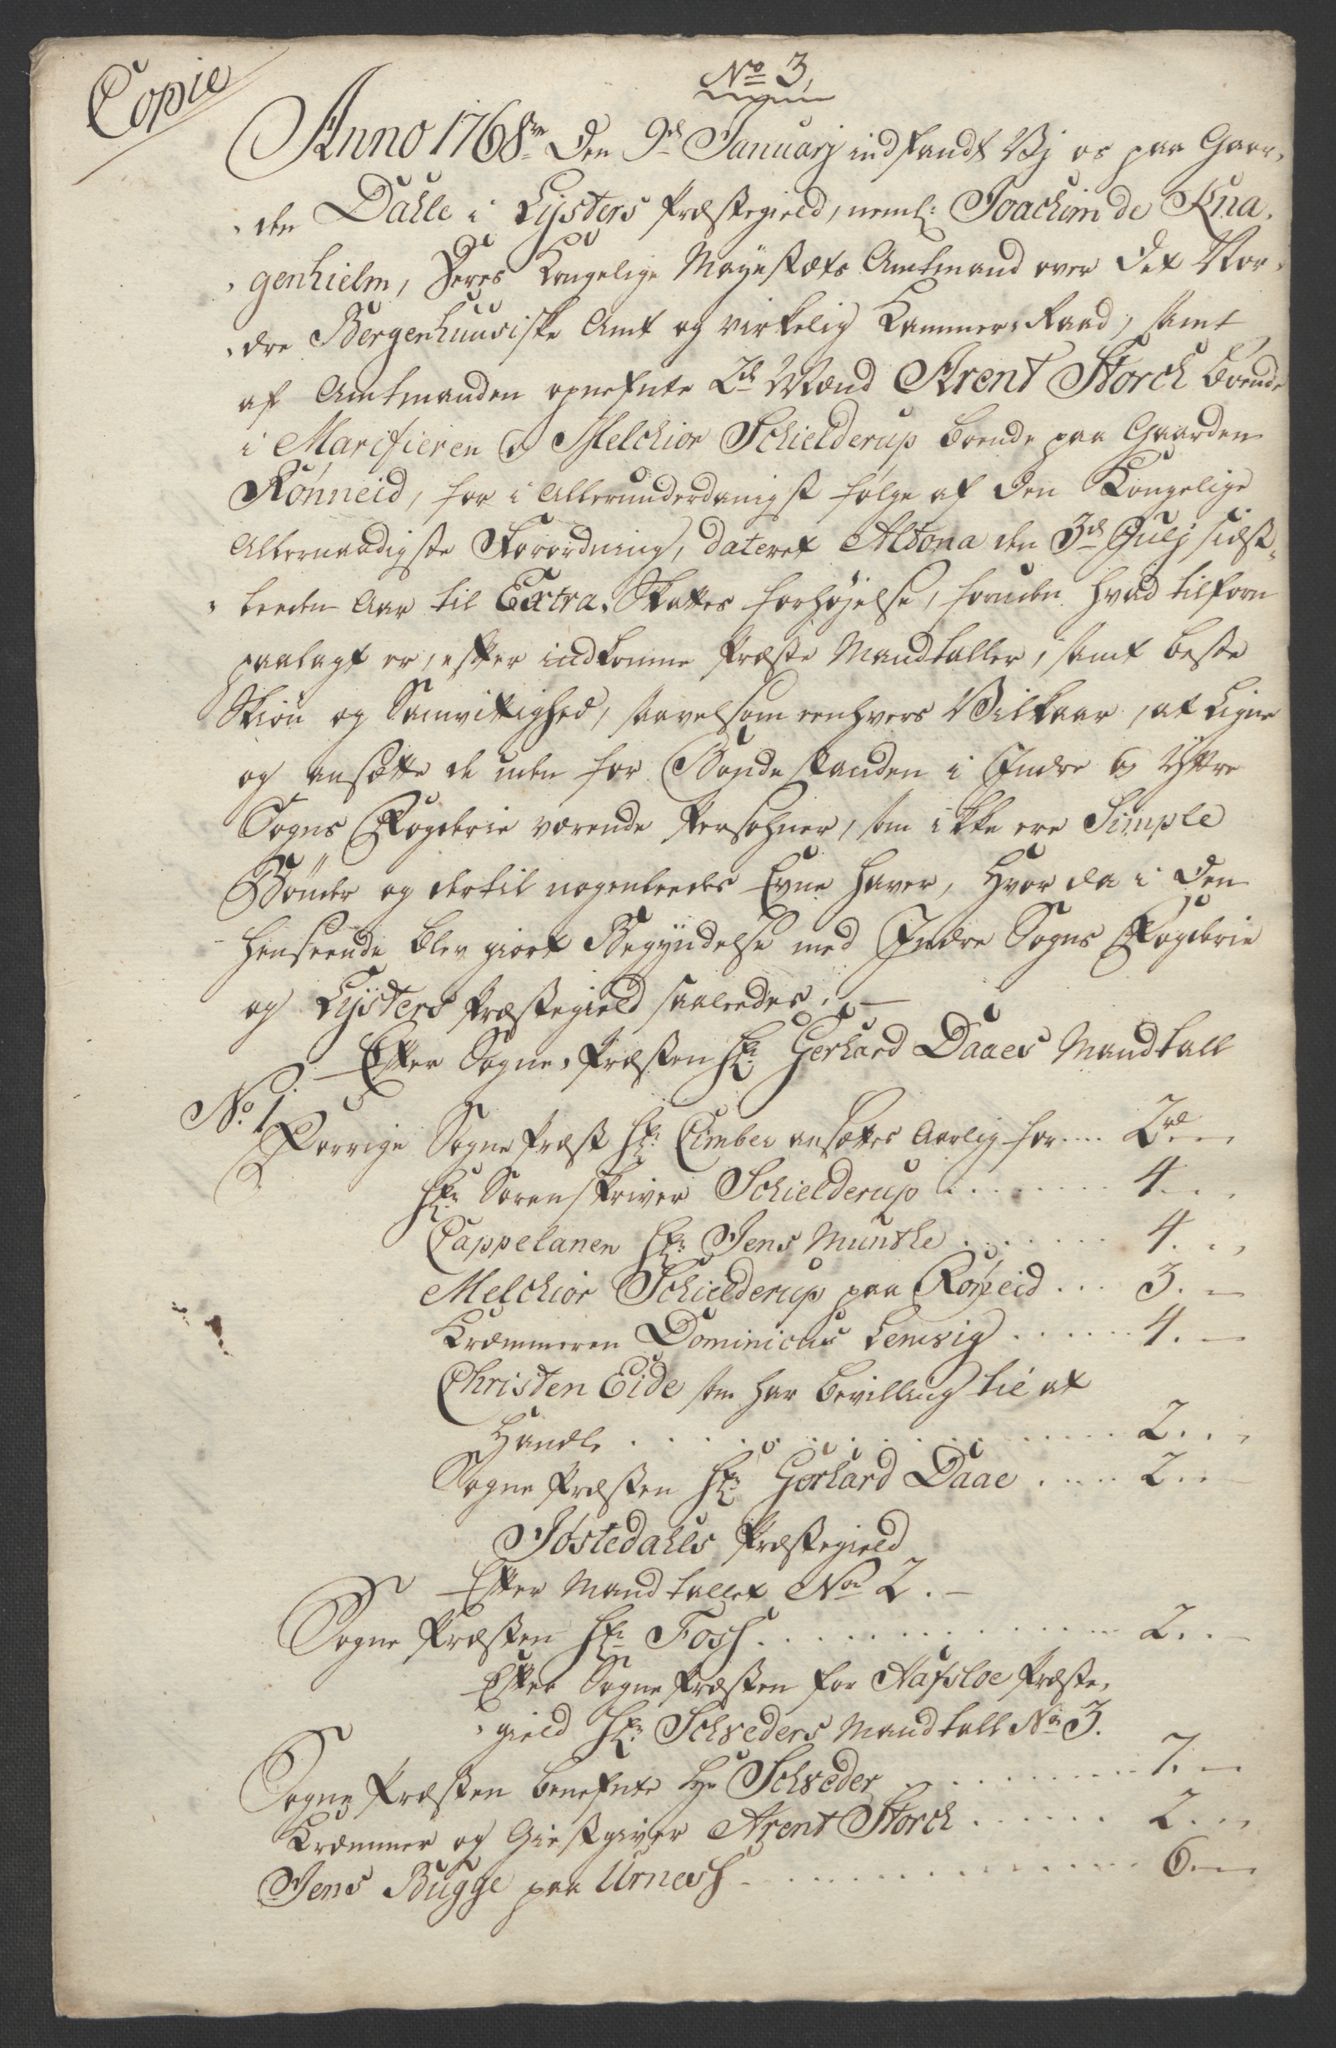 Copie
No 3,
Anno 1768 den 9de Januarj indfandt Vj os paa Gaar-
den Dahle i Lysters Præstegield, neml: Joachim de Kna-
genhielm, Deres Kongelige Mayestæts Amtmand over det Nor-
dre Bergenhuusiske Amt og virkelig Kammer-Raad, samt
af Amtmanden opnefnte 2de Mænd Arent Storch boende
i Marifieren og Melchior Schielderup boende paa Gaarden
Rønneid, for i Allerunderdanigst følge af den Kongelige
Allernaadigste Forordning, dateret Altona den 3de Julj sidst-
leeden Aar til Extra-Skattes forhøjelse, foruden hvad tilforn
paalagt er, efter indkomne Præste Mandtaller, samt beste
Skiøn og Samvittighed, saavelsom eenhvers Vilkaar, at Ligne
og ansætte de uden for Bondestanden i Indre og Yttre
Sogns Fogderie værende Persohner, som ikke ere Simple
Bønder og dertil nogenleedes Evne haver, Hvor da i den
henseende blev giort Begyndelse med Indre Sogns Fogderie
og Lysters Præstegield saaledes. —
Efter Sogne-Præsten Hr: Gerhard Daaes Mandtall
No 1.
Forrige Sogne Præst Hr: Cimber ansættes Aarlig for .... 2rd. —
Hr: Sorenskriver Schielderup ........ 4. —
Cappelanen Hr: Jens Munthe ....... 4. —
Melchior Schielderup paa Røneid ... 3. —
Kræmmeren Dominicus Lemvig ...... 4. —
Christen Eide som har bevilling til at
Handle ............ 2. —
Sogne Præsten Hr: Gerhard Daae ..... 2. —
Jostedahls Præstegield
Efter Mandtallet No 2. —
Sogne Præsten Hr: Fosh ............ 2. —
Efter Sogne Præsten for Hafsloe Præste-
gield Hr: Schreders Mandtall No 3.
Sogne Præsten benefnte Hr Schreder ........ 7. —
Kræmmer og Giestgiver Arent Storch ...... 2. —
Jens Bugge paa Urnesh ............ 6. —